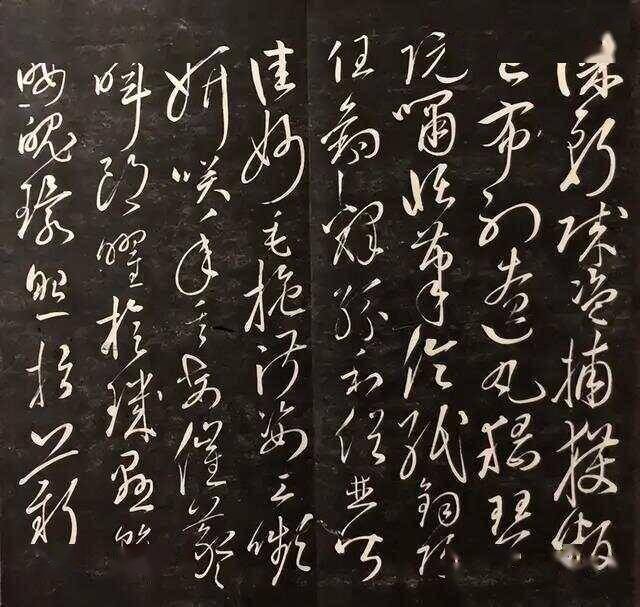 誅斬賊盜捕獲叛
亡布射遼丸嵇琴
阮嘯恬筆倫紙鈞巧
任釣釋紛利俗並皆
佳妙毛施淑姿工顰
妍咲年矢每催羲
暉朗曜旋璣懸斡
晦魄環照指薪